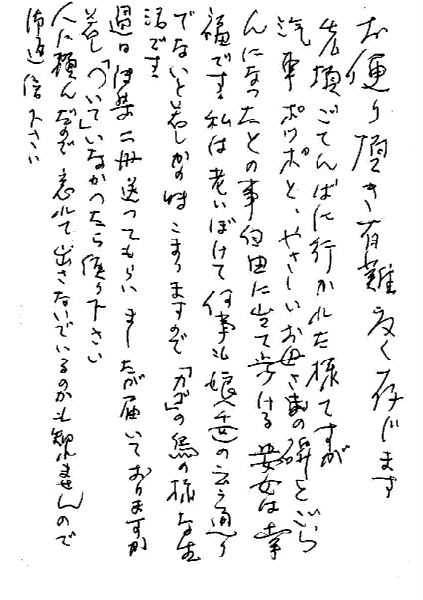 お便り頂き有難度く存じます
先頃ごてんばに行かれた様ですが
汽車ポッポと、やさしいお母さまの碑とごら
んになったとの事 自由に出て歩ける貴女は幸
福です 私は老いぼけて何事も娘 の云う通り
でないと若しかの時こまりますので「カゴ」の鳥の様な生
活です
過日 二冊送ってもらいましたが届いておりますか
若し「ついて」いなかったら 下さい
人に頼んだので忘れて出さないでいるのかも知れませんので
御返信下さい